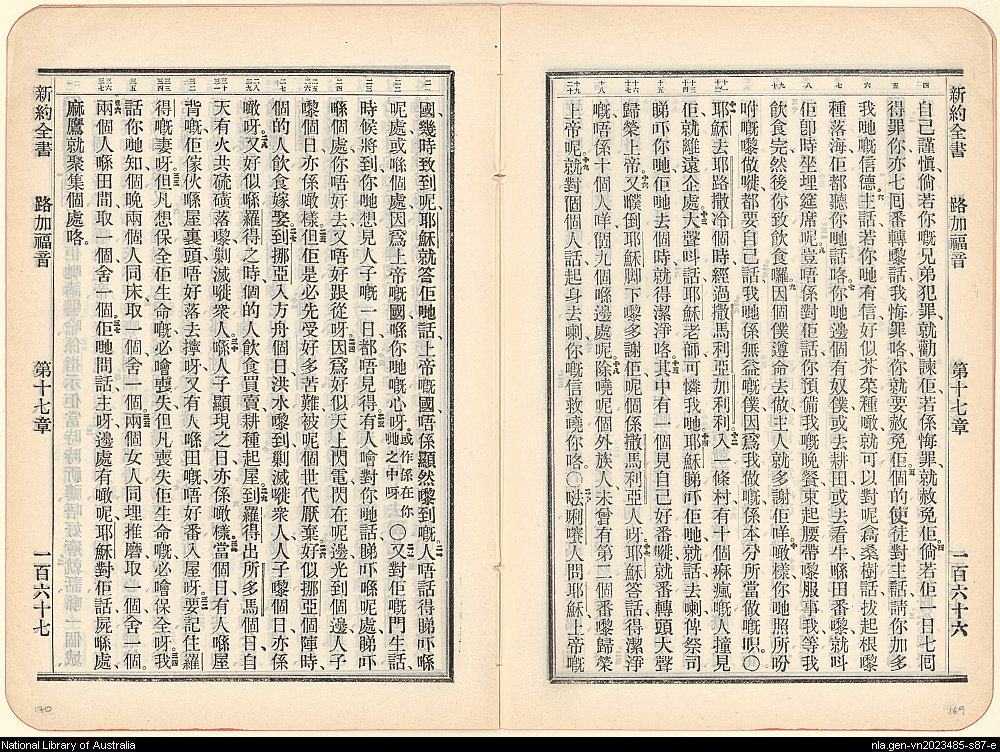 新約全書 路加福音 第十七章 一百六十六
自己謹慎倘若你嘅兄弟犯罪就勸諫佢若係悔罪就赦免佢倘若佢一日七囘
得罪你亦七囘番轉嚟話我悔罪咯你就要赦免佢個的使徒對主話請你加多
我哋嘅信德主話若你哋有信好似芥菜種噉就可以對呢樖桑樹話拔起根嚟
種落海佢都聽你哋話咯你哋邊個有奴僕或去耕田或去看牛喺田番嚟就呌
佢卽時坐埋筵席呢豈唔係對佢話你預備我嘅晚餐束起腰帶嚟服事我等我
飲食完然後你致飲食囉因個僕遵命去做主人就多謝佢咩噉樣你哋照所吩
咐嘅嚟做嘥都要自己話我哋係無益嘅僕因爲我做嘅係本分所當做嘅呮〇
耶穌去耶路撒冷個時經過撒馬利亞加利利入一條村有十個痳瘋嘅人撞見
佢就離遠企處大聲呌話耶穌老師可憐我哋耶穌睇吓佢哋就話去喇俾祭司
睇吓你哋佢哋去個時就得潔淨咯其中有一個見自己好番嘥就番轉頭大聲
歸榮上帝又噗倒耶穌脚下嚟多謝佢呢個係撒馬利亞人呀耶穌答話得潔淨
嘅唔係十個人咩個九個喺邊處呢除曉呢個外族人未曾有第二個番嚟歸榮
上帝呢就對個個人話起身去喇你嘅信救曉你咯〇㕸唎㘔人問耶穌上帝嘅
國幾時致到呢耶穌就答佢哋話上帝嘅國唔係顯然嚟到嘅人唔話得睇吓喺
呢處或喺個處因爲上帝嘅國喺你哋嘅心呀或作係在你哋之中呀〇又對佢嘅門生話
時候將到你哋想見人子嘅一日都唔見得有人噲對你哋話睇吓喺呢處睇吓
喺個處你唔好去又唔好跟從呀因爲好似天上閃電閃在呢邊光到個邊人子
嚟個日亦係噉樣但佢是必先受好多苦難被呢個世代厭棄好似挪亞個陣時
個的人飲食嫁娶到挪亞入方舟個日洪水嚟到剿滅嘥衆人人子嚟個日亦係
噉呀又好似喺羅得之時個的人飲食買賣耕種起屋到羅得出所多馬個日自
天有火共硫磺落嚟剿滅嘥衆人喺人子顯現之日亦係噉樣當個日有人喺屋
背嘅佢傢伙喺屋裏頭唔好落去擰呀又有人喺田嘅唔好番入屋呀要記住羅
得嘅妻呀但凡想保全佢生命嘅必噲喪失但凡喪失佢生命嘅必噲保全呀我
話你哋知個晚兩個人同床取一個舍一個兩個女人同埋推磨取一個舍一個
兩個人喺田間取一個舍一個佢哋問話主呀邊處有噉呢耶穌對佢話屍喺處
麻鷹就聚集個處咯
新約全書 路加福音 第十七章 一百六十七
169
170
National Library of Australia
nla.gen-vn2023485-s87-e